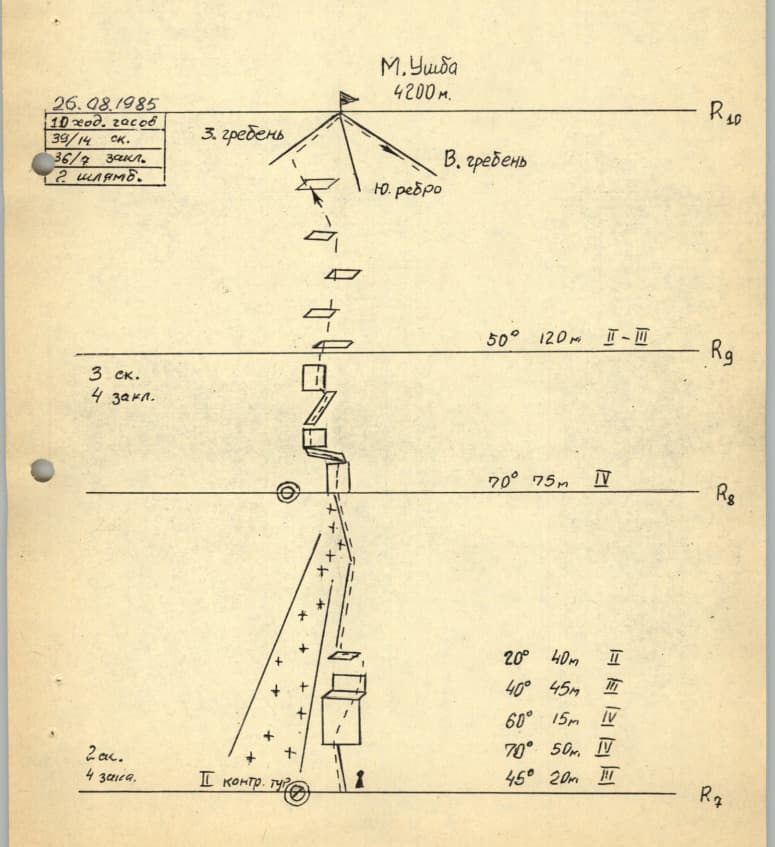 М. Ушба
4200 м.
26.08.1985
10 ход. часов
39/14 ск.
36/7 закл.
2 шлямб.
R10
З. гребень
В. гребень
Ю. ребро
50° 120м II-III
R9
3 ск.
4 закл.
70° 75м IV
R8
20° 40м II
40° 45м III
60° 15м IV
70° 50м IV
45° 20м III
2 ск.
4 закл.
II контр. тур
R7